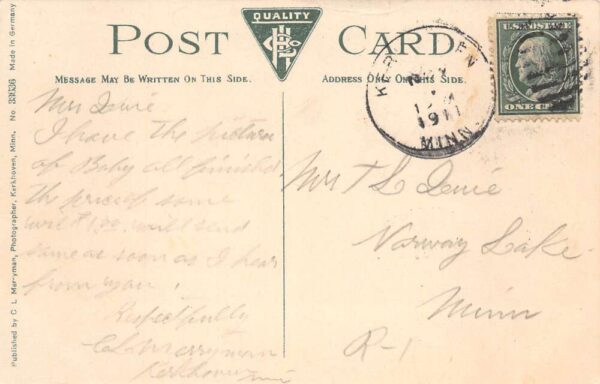 QUALITY
POST CARD
MESSAGE MAY BE WRITTEN ON THIS SIDE.
ADDRESS ONLY ON THIS SIDE.
Published by C L Merryman, Photographer, Kerkhoven, Minn. No 33936 Made in Germany
I have the picture
of Baby all finished
the price of same
will $1.00. will send
same as soon as I hear
from you.
Respectfully
C L Merryman
Kerkhoven
Minn
KER EN
1911
MINN
U.S. POSTAGE
ONE CENT
Mrs T L
Norway Lake
Minn
R-1